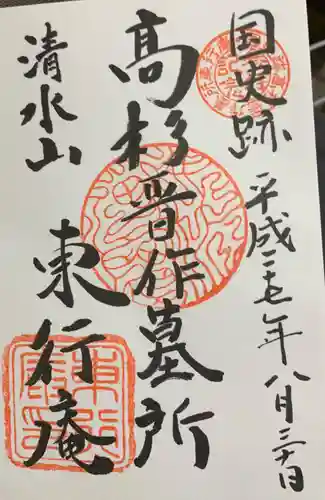 国史跡 平成二十七年八月三十日
高杉晋作墓所
清水山 東行庵